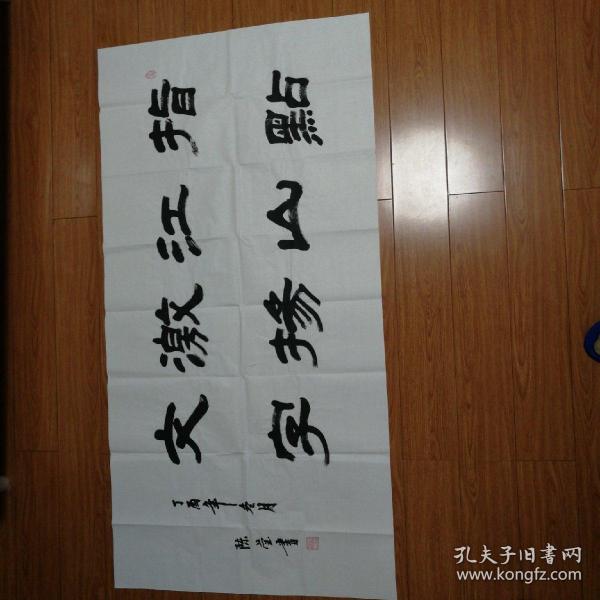 指點
江山
激揚
文字
丁酉年冬月
陈莹書
孔夫子旧書网
www.kongfz.com